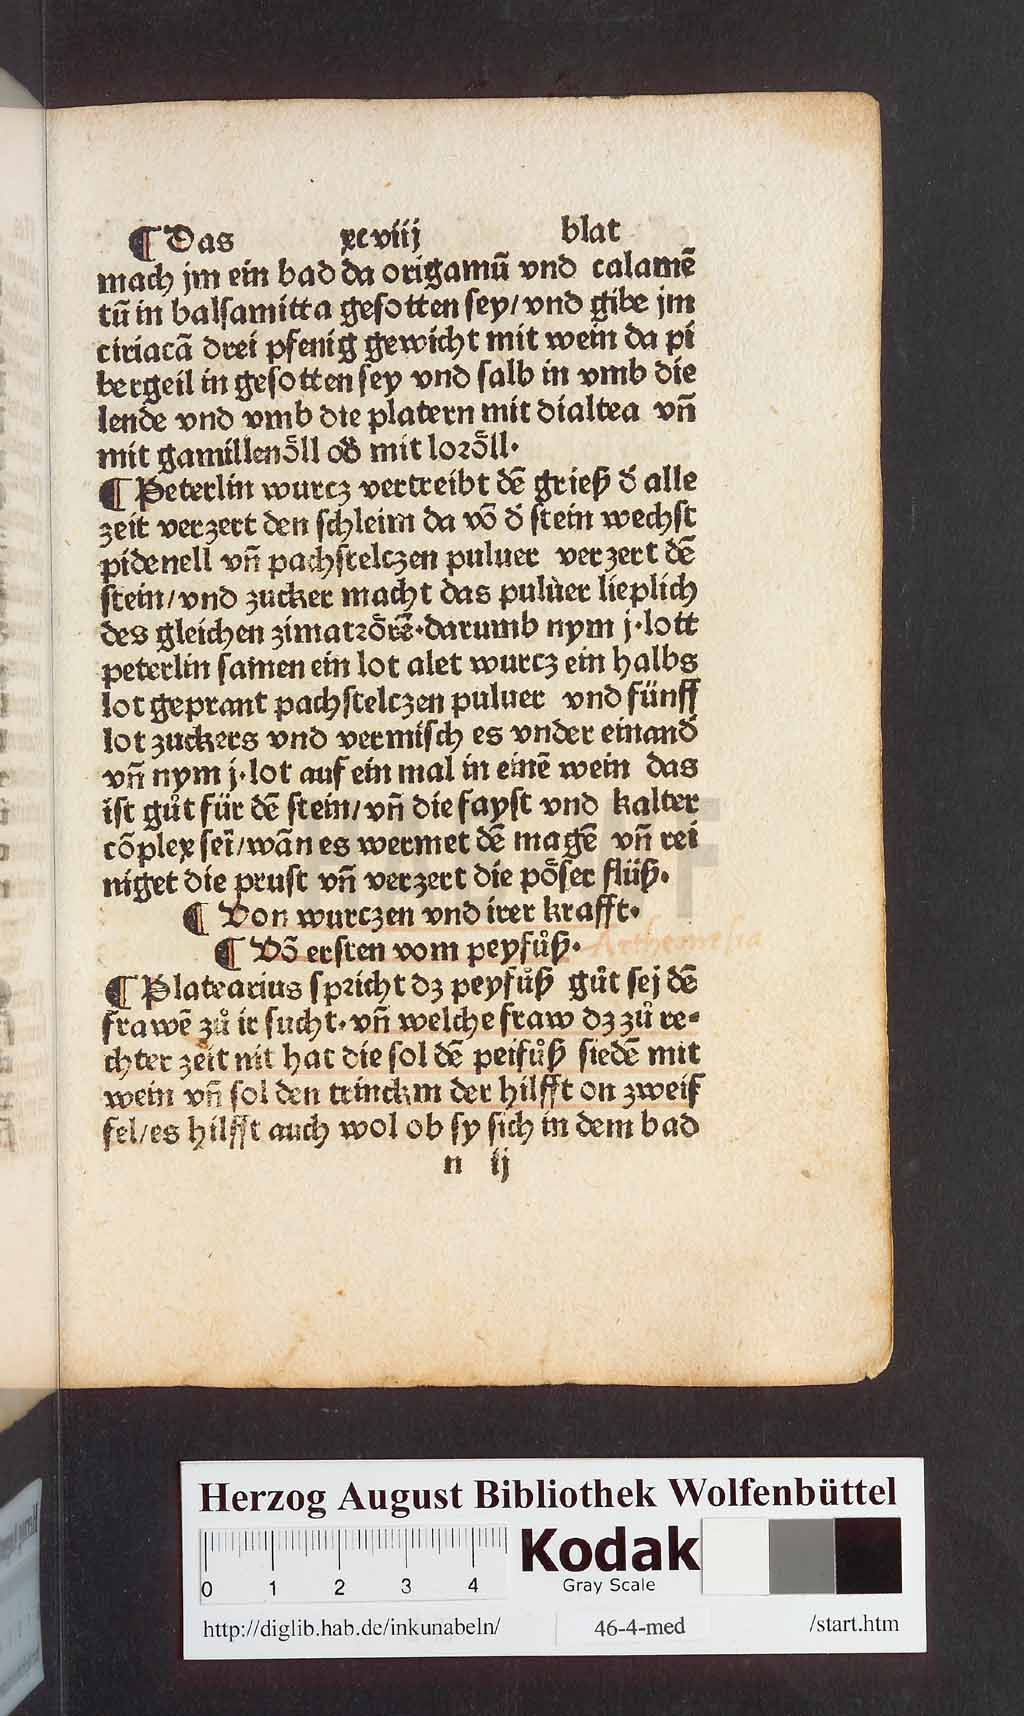 ¶ Das xcviij blat
mach jm ein bad da origamū vnd calamē
tū in balsamitta gesotten sey/vnd gibe jm
ciriacā drei pfenig gewicht mit wein da pi
bergeil in gesotten sey vnd salb in vmb die
lende vnd vmb die platern mit dialtea vn̄
mit gamillenöll od̕ mit loröll·
¶ Peterlin wurcz vertreibt dē grieß d̕ alle
zeit verzert den schleim da vō d̕ stein wechst
pidenell vn̄ pachstelczen puluer verzert dē
stein/vnd zucker macht das puluer lieplich
des gleichen zimatrörē·darumb nym j·lott
peterlin samen ein lot alet wurcz ein halbs
lot geprant pachstelczen puluer vnd fünff
lot zuckers vnd vermisch es vnder einand̕
vn̄ nym j·lot auf ein mal in einē wein das
ist gůt für dē stein/vn̄ die fayst vnd kalter
cōplex sei/wān es wermet dē magē vn̄ rei
niget die prust vn̄ verzert die pösēr flüß·
¶ Von wurczen vnd irer krafft·
¶ Vō ersten vom peyfůß· Arthemesia
¶ Platearius spricht dz peyfůß gůt sej dē
frawē zů ir sucht·vn̄ welche fraw dz zů re-
chter zeit nit hat die sol dē peifůß siedē mit
wein vn̄ sol den trinckm der hilfft on zweif
fel/es hilfft auch wol ob sy sich in dem bad
n ij
Herzog August Bibliothek Wolfenbüttel
0 1 2 3 4
Kodak
Gray Scale
http://diglib.hab.de/inkunabeln/ 46-4-med /start.htm